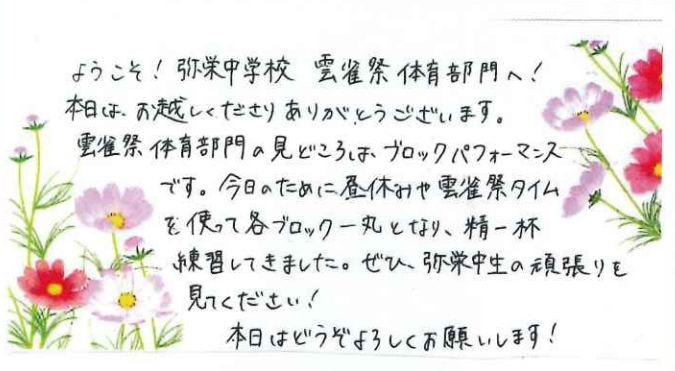 ようこそ！弥栄中学校 雲雀祭体育部門へ！
本日は、お越しくださりありがとうございます。
雲雀祭体育部門の見どころは、ブロックパフォーマンス
です。今日のために昼休みや雲雀祭タイム
を使って各ブロック一丸となり、精一杯
練習してきました。ぜひ、弥栄中生の頑張りを
見てください！
本日はどうぞよろしくお願いします！